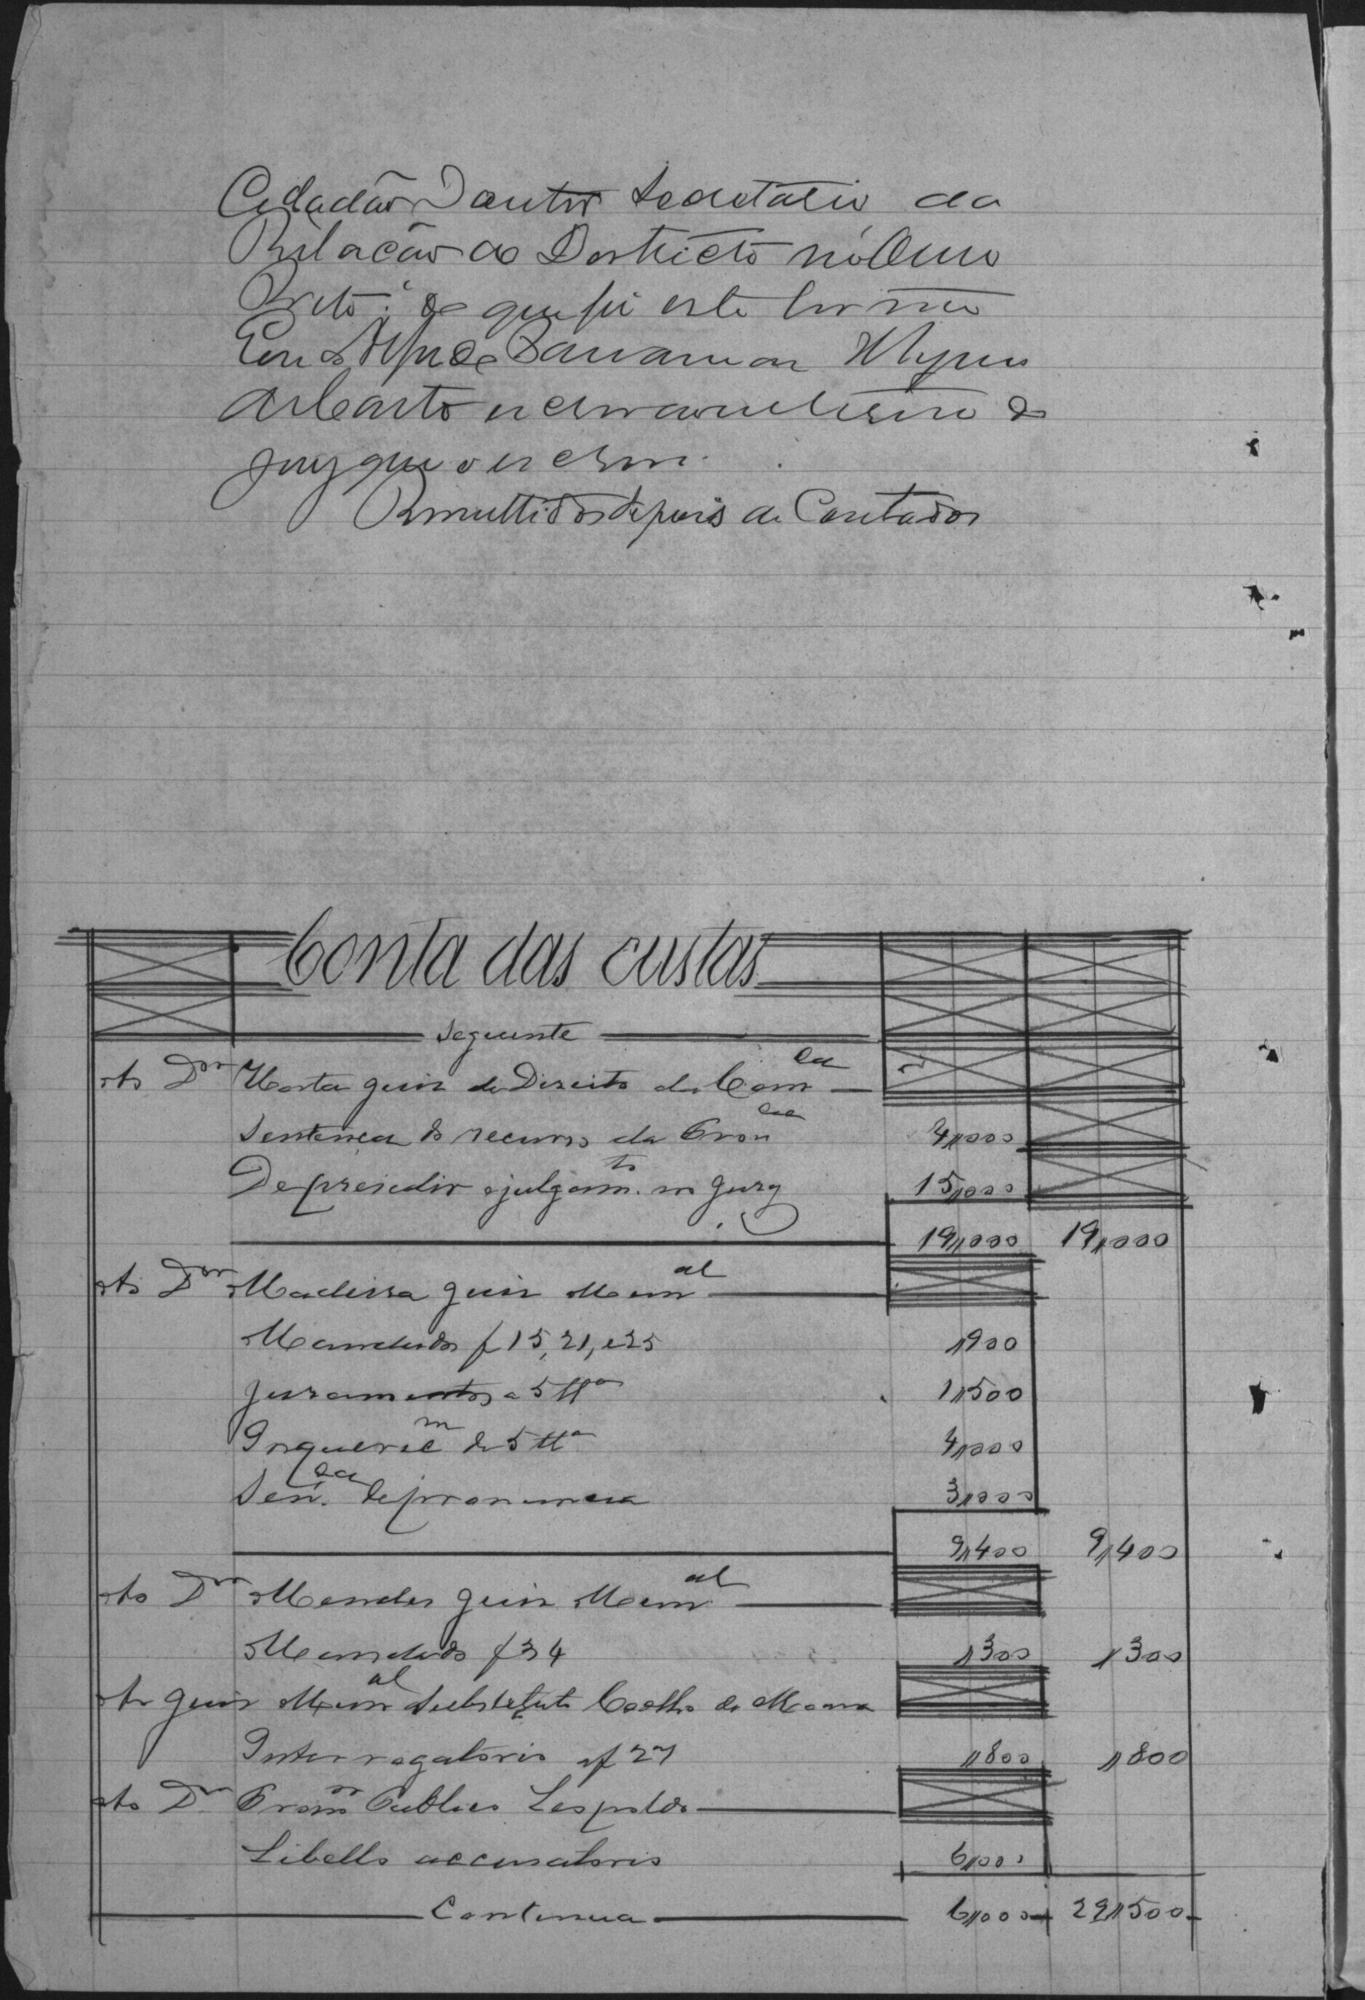 Cidadão Doutor Secretario da
Relação do Districto no Ouro
Preto; do que fiz este termo
Eu
escrevi
Remettidos depois de Contados
Conta das custas
Seguinte
Ao Dor Horta Juiz de Direito da Comca
Sentença do recurso da Pronca 4,000
De presedir o julgamto no Jury 15,000
19,000 19,000
Ao Dor Madeira Juiz Munal
Mandados f 15, 21, e 25 ,900
Juramentos a 5 ttas 1,500
Inquericm de 5 ttas 4,000
Senca de pronuncia 3,000
9,400 9,400
Ao Dor Mendes Juiz Munal
Mandado f 34 ,300 ,300
Ao Juiz Munal Substituto Coelho de Moura
Interrogatorio af 27 ,800 ,800
Ao Dor Promor Publico Leopoldo
Libello accusatorio 6,000
Continua 6,000 29,500